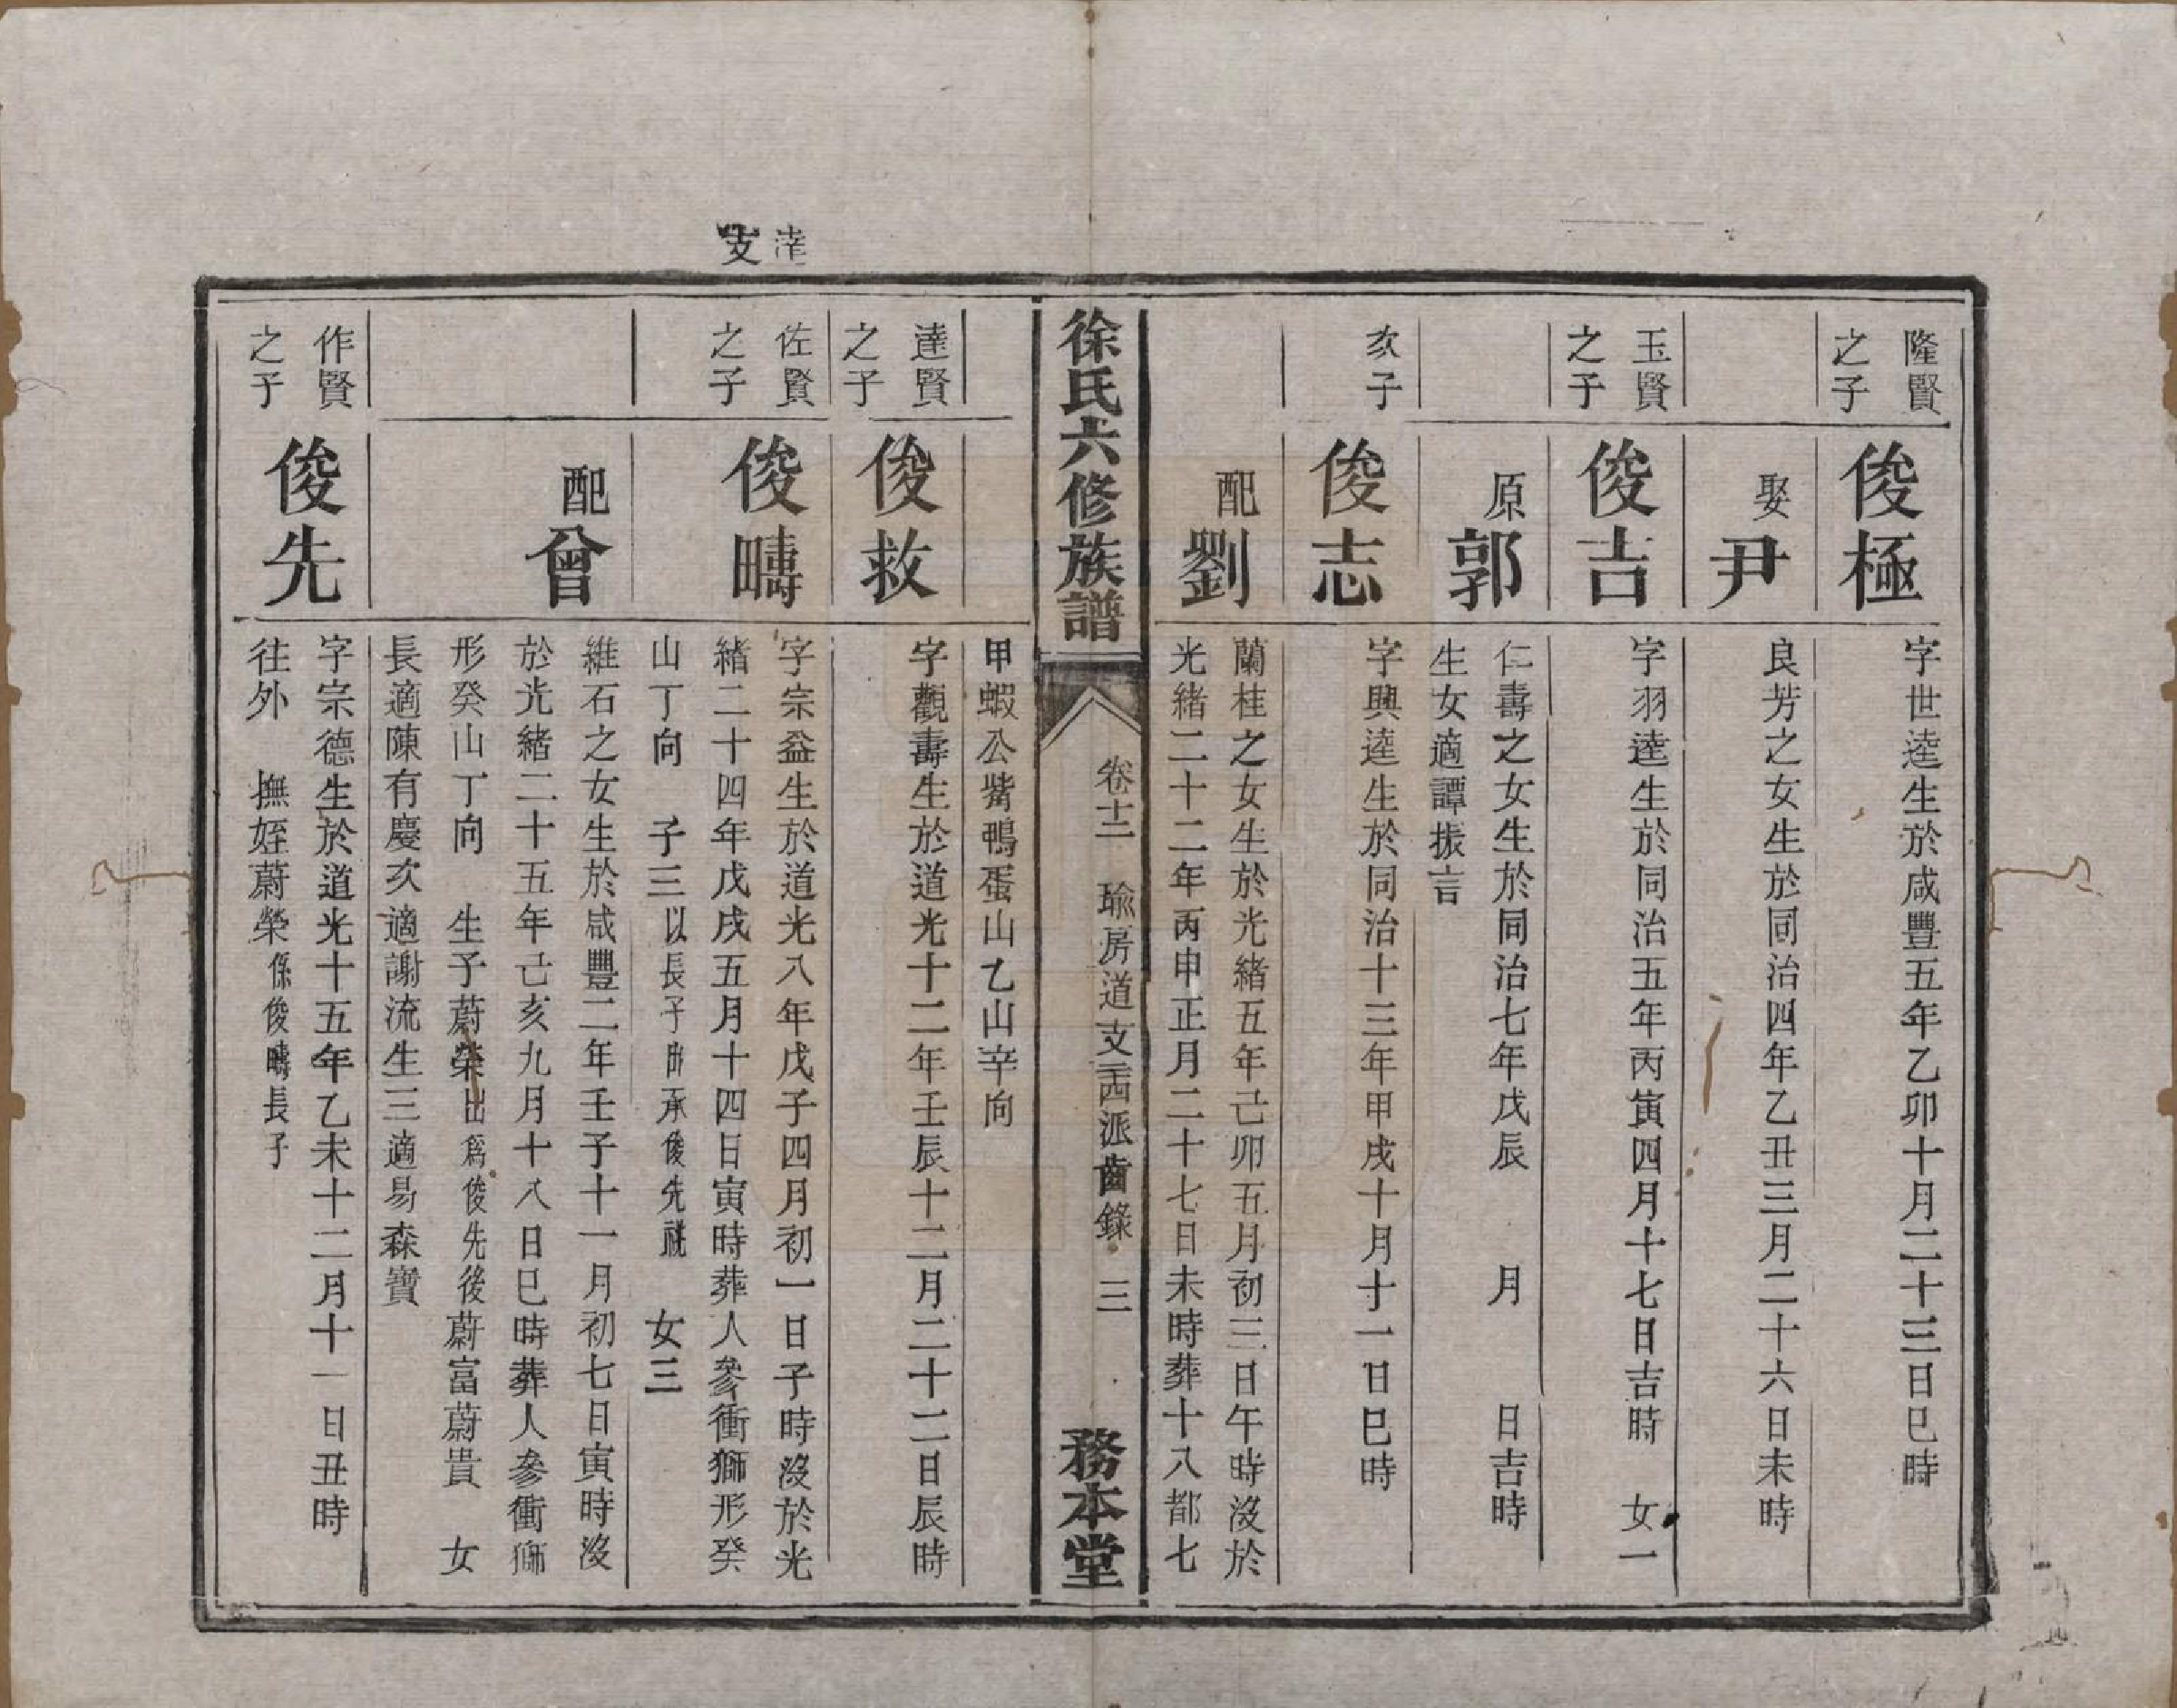 隆賢
之子
俊極
字世逵生於咸豐五年乙卯十月二十三日巳時
娶尹
良芳之女生於同治四年乙丑三月二十六日未時
玉賢
之子
俊吉
字羽逵生於同治五年丙寅四月十七日吉時 女一
原郭
仁壽之女生於同治七年戊辰 月 日吉時
生女適譚振言
次子
俊志
字興逵生於同治十三年甲戌十月十一日巳時
配劉
蘭桂之女生於光緒五年己卯五月初三日午時沒於
光緒二十二年丙申正月二十七日未時葬十八都七
徐氏六修族譜
卷十二 瑜房道支西派齒錄 三
務本堂
甲蝦公觜鴨蛋山乙山辛向
達賢
之子
俊救
字觀壽生於道光十二年壬辰十二月二十二日辰時
支
佐賢
之子
俊疇
字宗益生於道光八年戊子四月初一日子時沒於光
緒二十四年戊戌五月十四日寅時葬人參衝獅形癸
山丁向 子三以長子出承俊先祧 女三
配曾
維石之女生於咸豐二年壬子十一月初七日寅時沒
於光緒二十五年己亥九月十八日巳時葬人參衝獅
形癸山丁向 生子蔚榮出爲俊先後蔚富蔚貴 女
長適陳有慶次適謝流生三適易森寶
作賢
之子
俊先
字宗德生於道光十五年乙未十二月十一日丑時
往外 撫姪蔚榮係俊疇長子